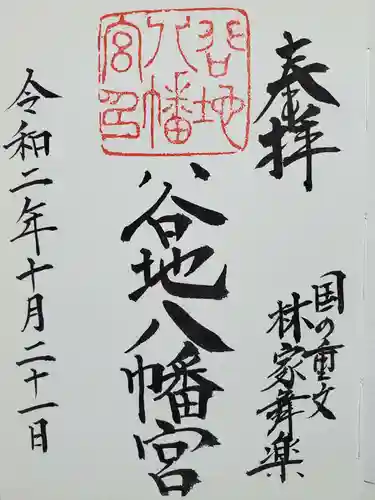 奉拝
国の重文
林家舞楽
谷地八幡宮
谷地
八幡
宮印
令和二年十月二十一日